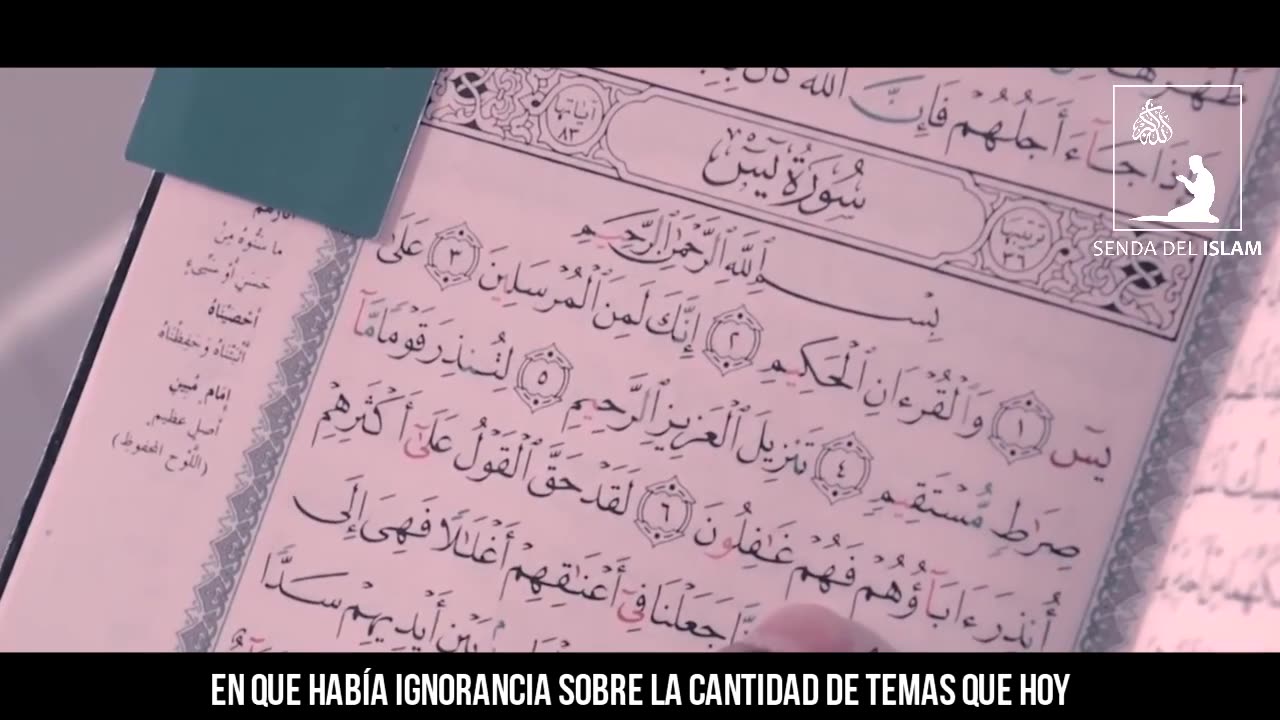 فَإِذَا جَآءَ أَجَلُهُمْ فَإِنَّ ٱللَّهَ كَانَ
سُورَةُ يسٓ
آيَاتُهَا ٨٣
تَرتيبُهَا ٣٦
بِسْمِ ٱللَّهِ ٱلرَّحْمَٰنِ ٱلرَّحِيمِ
يسٓ ١ وَٱلْقُرْءَانِ ٱلْحَكِيمِ ٢ إِنَّكَ لَمِنَ ٱلْمُرْسَلِينَ ٣ عَلَىٰ
صِرَٰطٍ مُّسْتَقِيمٍ ٤ تَنزِيلَ ٱلْعَزِيزِ ٱلرَّحِيمِ ٥ لِتُنذِرَ قَوْمًا مَّآ
أُنذِرَ ءَابَآؤُهُمْ فَهُمْ غَٰفِلُونَ ٦ لَقَدْ حَقَّ ٱلْقَوْلُ عَلَىٰٓ أَكْثَرِهِمْ
جَعَلْنَا فِىٓ أَعْنَٰقِهِمْ أَغْلَٰلًا فَهِىَ إِلَى
بَيْنِ أَيْدِيهِمْ سَدًّا
آثَارَهُمْ
مَا سَنُّوهُ مِنْ
حَسَنٍ أَوْ سَيِّئٍ
أَحْصَيْنَاهُ
أَثْبَتْنَاهُ وَحَفِظْنَاهُ
إِمَامٍ مُبِينٍ
أَصْلٍ عَظِيمٍ
(اللَّوْحِ المَحْفُوظِ)
SENDA DEL ISLAM
EN QUE HABÍA IGNORANCIA SOBRE LA CANTIDAD DE TEMAS QUE HOY